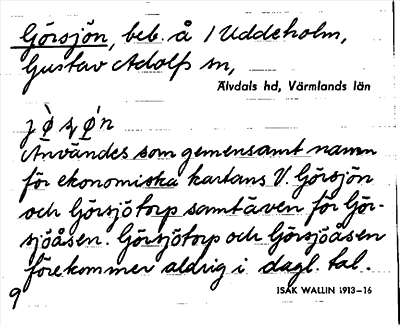 Görsjön, beb. å 1 Uddeholm,
Gustav Adolfs sn,
Älvdals hd, Värmlands län
Användes som gemensamt namn
för ekonomiska kartans V. Görsjön
och Görsjötorp samt även för Gör-
sjöåsen. Görsjötorp och Görsjöåsen
förekommer aldrig i dagl. tal.
ISAK WALLIN 1913-16